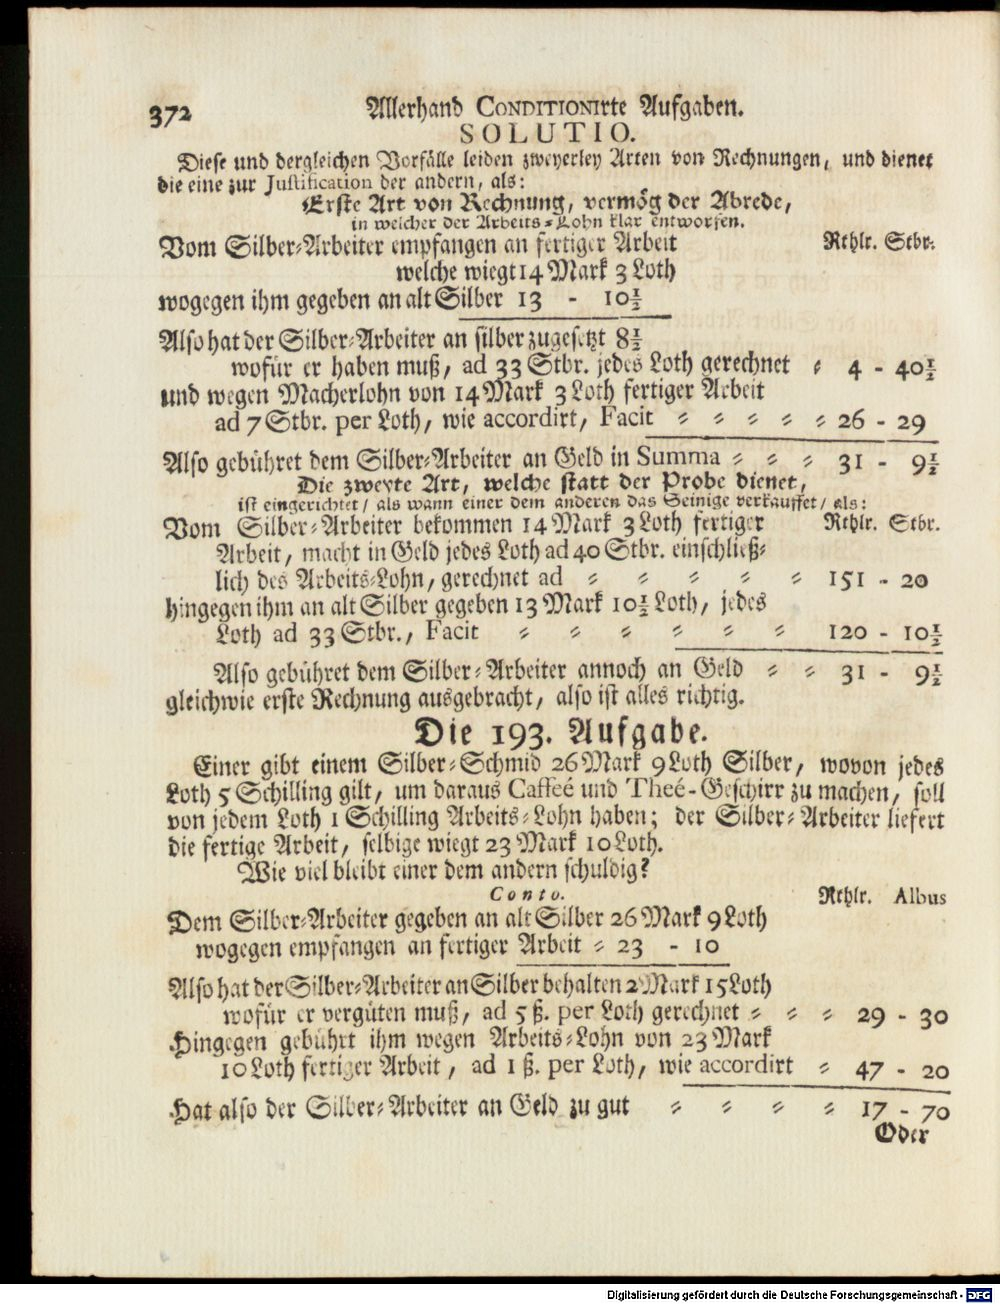 372
Allerhand CONDITIONIrte Aufgaben.
SOLUTIO.
Diese und dergleichen Vorfälle leiden zweyerley Arten von Rechnungen, und dienet
die eine zur Justification der andern, als:
Erste Art von Rechnung, vermög der Abrede,
in welcher der Arbeits⸗Lohn klar entworfen.
Vom Silber⸗Arbeiter empfangen an fertiger Arbeit Rthlr. Stbr.
welche wiegt 14 Mark 3 Loth
wogegen ihm gegeben an alt Silber 13 - 10½
Also hat der Silber⸗Arbeiter an silber zugesetzt 8½
wofür er haben muß, ad 33 Stbr. jedes Loth gerechnet ⸗ 4 - 40½
und wegen Macherlohn von 14 Mark 3 Loth fertiger Arbeit
ad 7 Stbr. per Loth, wie accordirt, Facit ⸗ ⸗ ⸗ ⸗ ⸗ 26 - 29
Also gebühret dem Silber⸗Arbeiter an Geld in Summa ⸗ ⸗ ⸗ 31 - 9½
Die zweyte Art, welche statt der Probe dienet,
ist eingerichtet/ als wann einer dem anderen das Seinige verkauffet/ als:
Vom Silber⸗Arbeiter bekommen 14 Mark 3 Loth fertiger Rthlr. Stbr.
Arbeit, macht in Geld jedes Loth ad 40 Stbr. einschließ⸗
lich des Arbeits⸗Lohn, gerechnet ad ⸗ ⸗ ⸗ ⸗ ⸗ 151 - 20
hingegen ihm an alt Silber gegeben 13 Mark 10½ Loth, jedes
Loth ad 33 Stbr., Facit ⸗ ⸗ ⸗ ⸗ ⸗ ⸗ 120 - 10½
Also gebühret dem Silber⸗Arbeiter annoch an Geld ⸗ ⸗ 31 - 9½
gleichwie erste Rechnung ausgebracht, also ist alles richtig.
Die 193. Aufgabe.
Einer gibt einem Silber⸗Schmid 26 Mark 9 Loth Silber, wovon jedes
Loth 5 Schilling gilt, um daraus Caffeé und Theé-Geschirr zu machen, soll
von jedem Loth 1 Schilling Arbeits⸗Lohn haben; der Silber⸗Arbeiter liefert
die fertige Arbeit, selbige wiegt 23 Mark 10 Loth.
Wie viel bleibt einer dem andern schuldig?
Conto. Rthlr. Albus
Dem Silber⸗Arbeiter gegeben an alt Silber 26 Mark 9 Loth
wogegen empfangen an fertiger Arbeit ⸗ 23 - 10
Also hat der Silber⸗Arbeiter an Silber behalten 2 Mark 15 Loth
wofür er vergüten muß, ad 5 ß. per Loth gerechnet ⸗ ⸗ ⸗ 29 - 30
Hingegen gebührt ihm wegen Arbeits⸗Lohn von 23 Mark
10 Loth fertiger Arbeit, ad 1 ß. per Loth, wie accordirt ⸗ 47 - 20
Hat also der Silber⸗Arbeiter an Geld zu gut ⸗ ⸗ ⸗ ⸗ 17 - 70
Oder
Digitalisierung gefördert durch die Deutsche Forschungsgemeinschaft - DFG